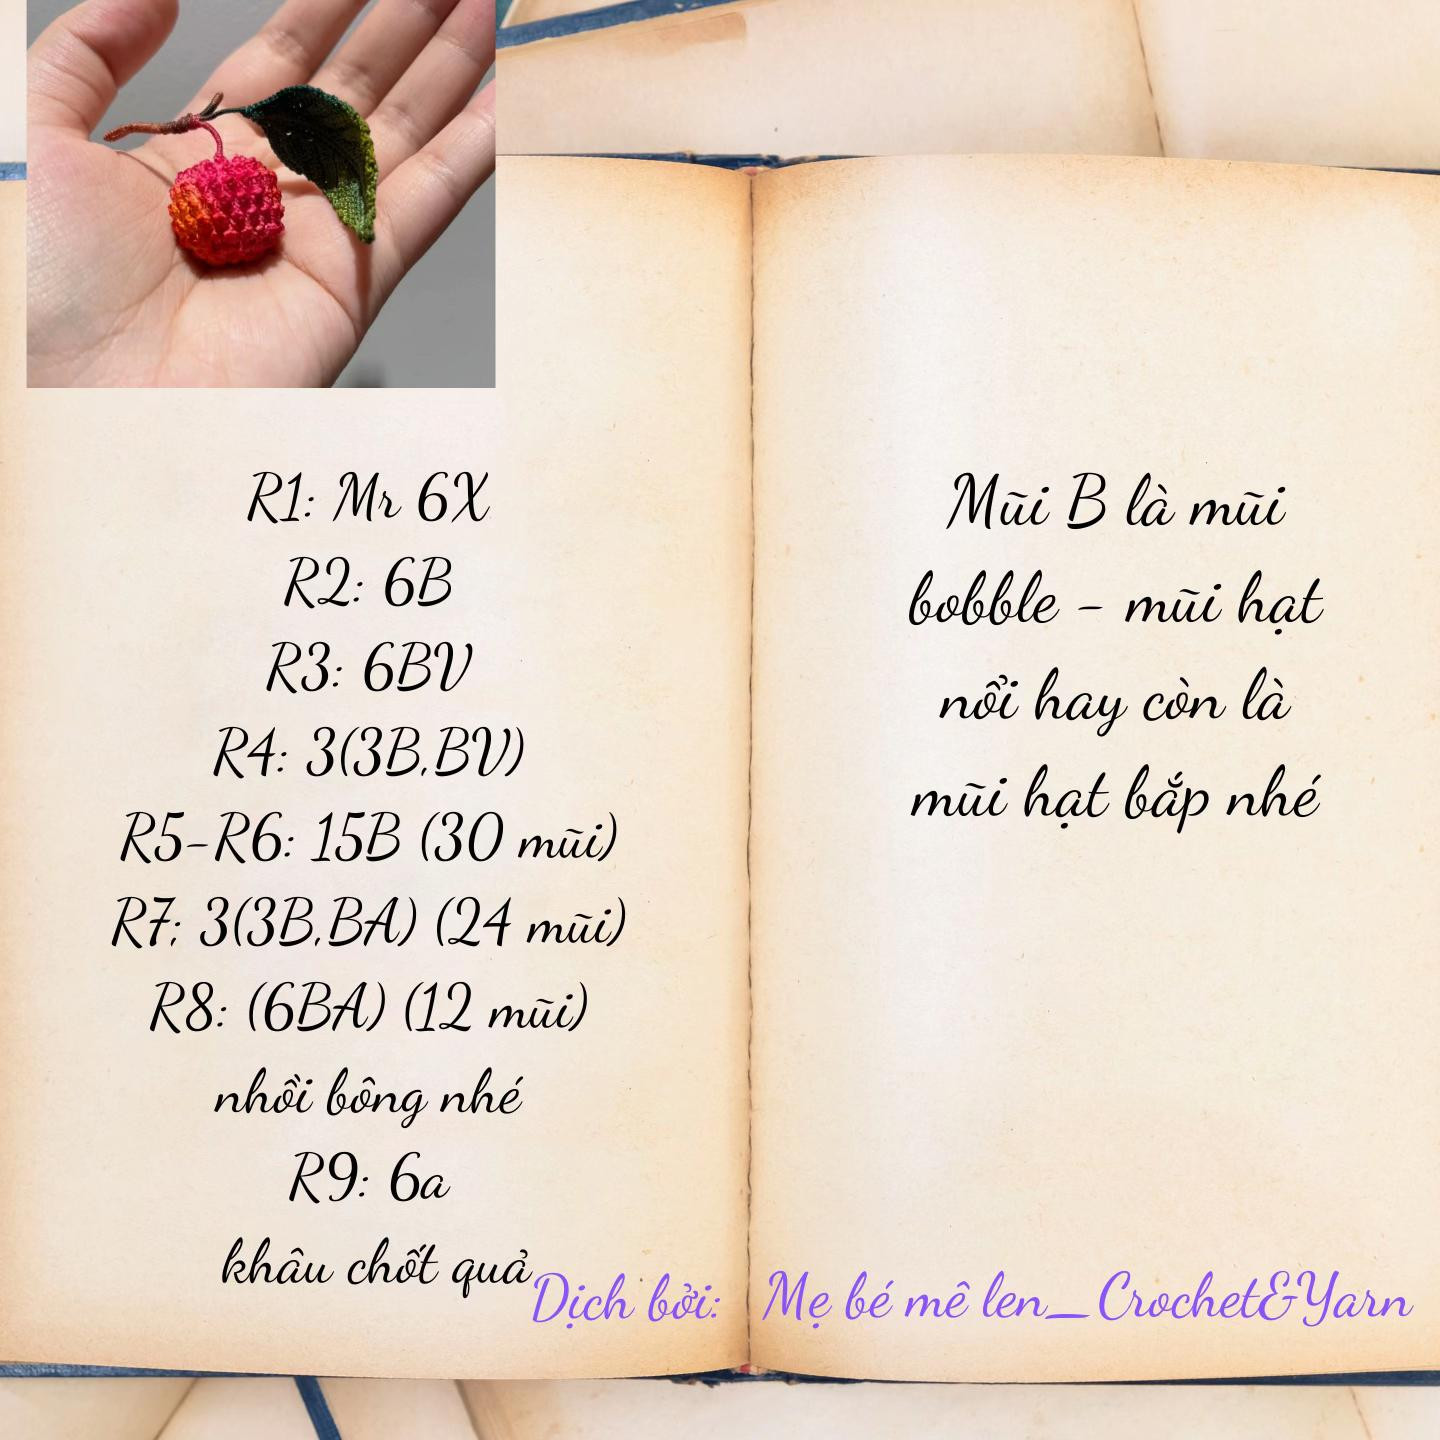 R1: Mr 6X
R2: 6B
R3: 6BV
R4: 3(3B,BV)
R5-R6: 15B (30 mũi)
R7: 3(3B,BA) (24 mũi)
R8: (6BA) (12 mũi)
nhồi bông nhé
R9: 6a
khâu chốt quả
Mũi B là mũi
bobble - mũi hạt
nổi hay còn là
mũi hạt bắp nhé
Dịch bởi: Mẹ bé mê len_Crochet&Yarn